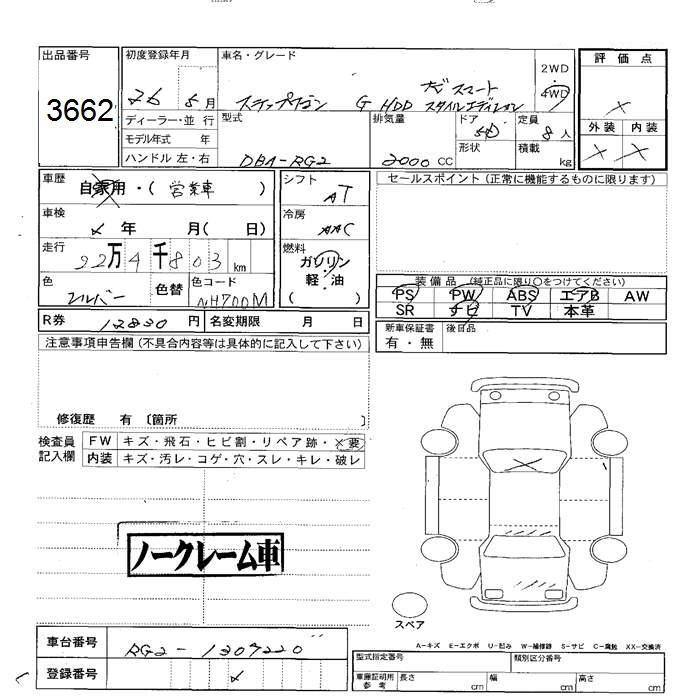 出品番号
3662
初度登録年月
26 8月
ディーラー・並行
モデル年式 年
ハンドル 左・右
車名・グレード
ステップワゴン G HDD ナビ スマート
スタイルエディション
2WD
4WD
型式
DBA-RG2
排気量
2000 CC
ドア
5D
形状
定員
8人
積載
kg
評価点
×
外装 内装
× ×
車歴
自家用・(営業車)
車検
年 月(日)
走行
22万4千803km
色
シルバー
色替
色コード
NH700M
シフト
AT
冷房
AAC
燃料
ガソリン
軽・油
( )
セールスポイント(正常に機能するものに限ります)
装備品(純正品に限り○をつけてください)
PS PW ABS エアB AW
SR ナビ TV 本革
新車保証書
有・無
後日品
R券 12830円
名変期限 月 日
注意事項申告欄(不具合内容等は具体的に記入して下さい)
修復歴 有〔箇所 〕
検査員
記入欄
FW キズ・飛石・ヒビ割・リペア跡・×要
内装 キズ・汚レ・コゲ・穴・スレ・キレ・破レ
ノークレーム車
スペア
A-キズ E-エクボ U-凹み W-補修跡 S-サビ C-腐蝕 XX-交換済
車台番号
RG2-1307220
登録番号
型式指定番号
類別区分番号
車庫証明用
参考
長さ cm
幅 cm
高さ cm